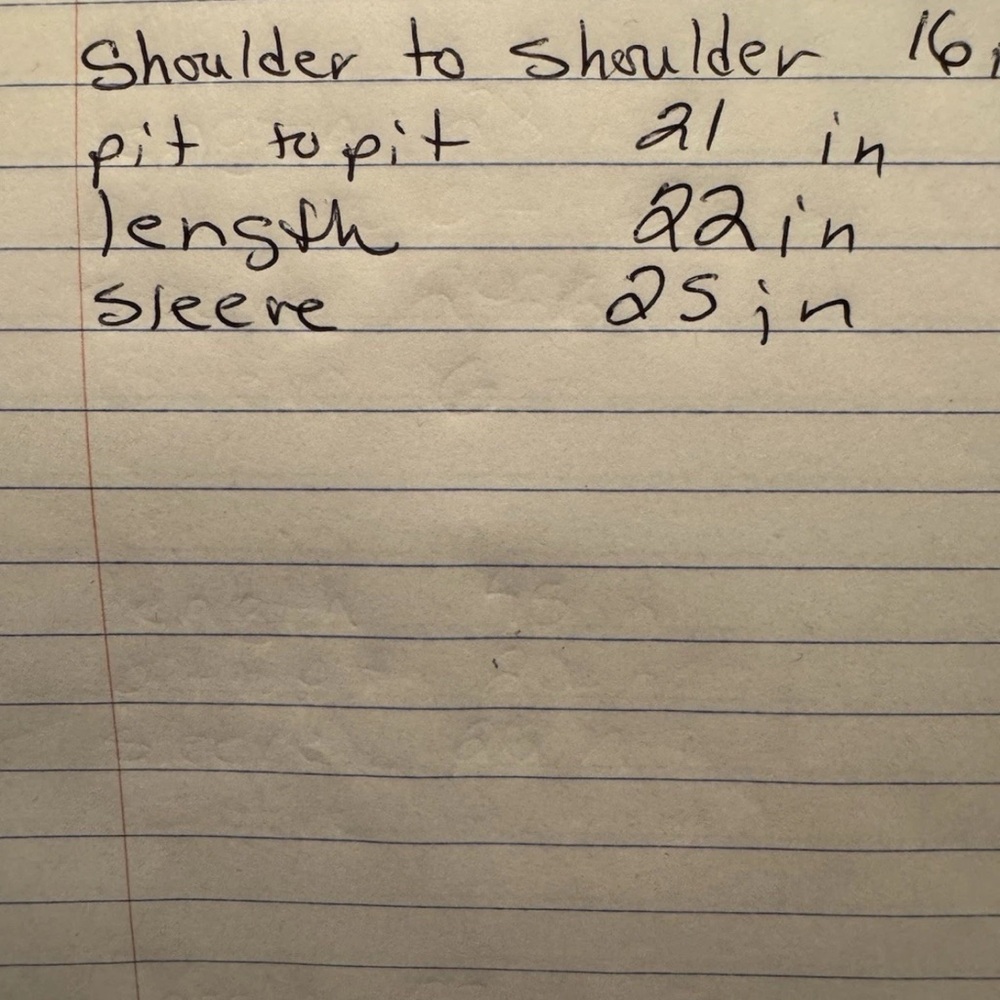 Shoulder to Shoulder 16 i
pit to pit 21 in
length 22 in
Sleeve 25 in